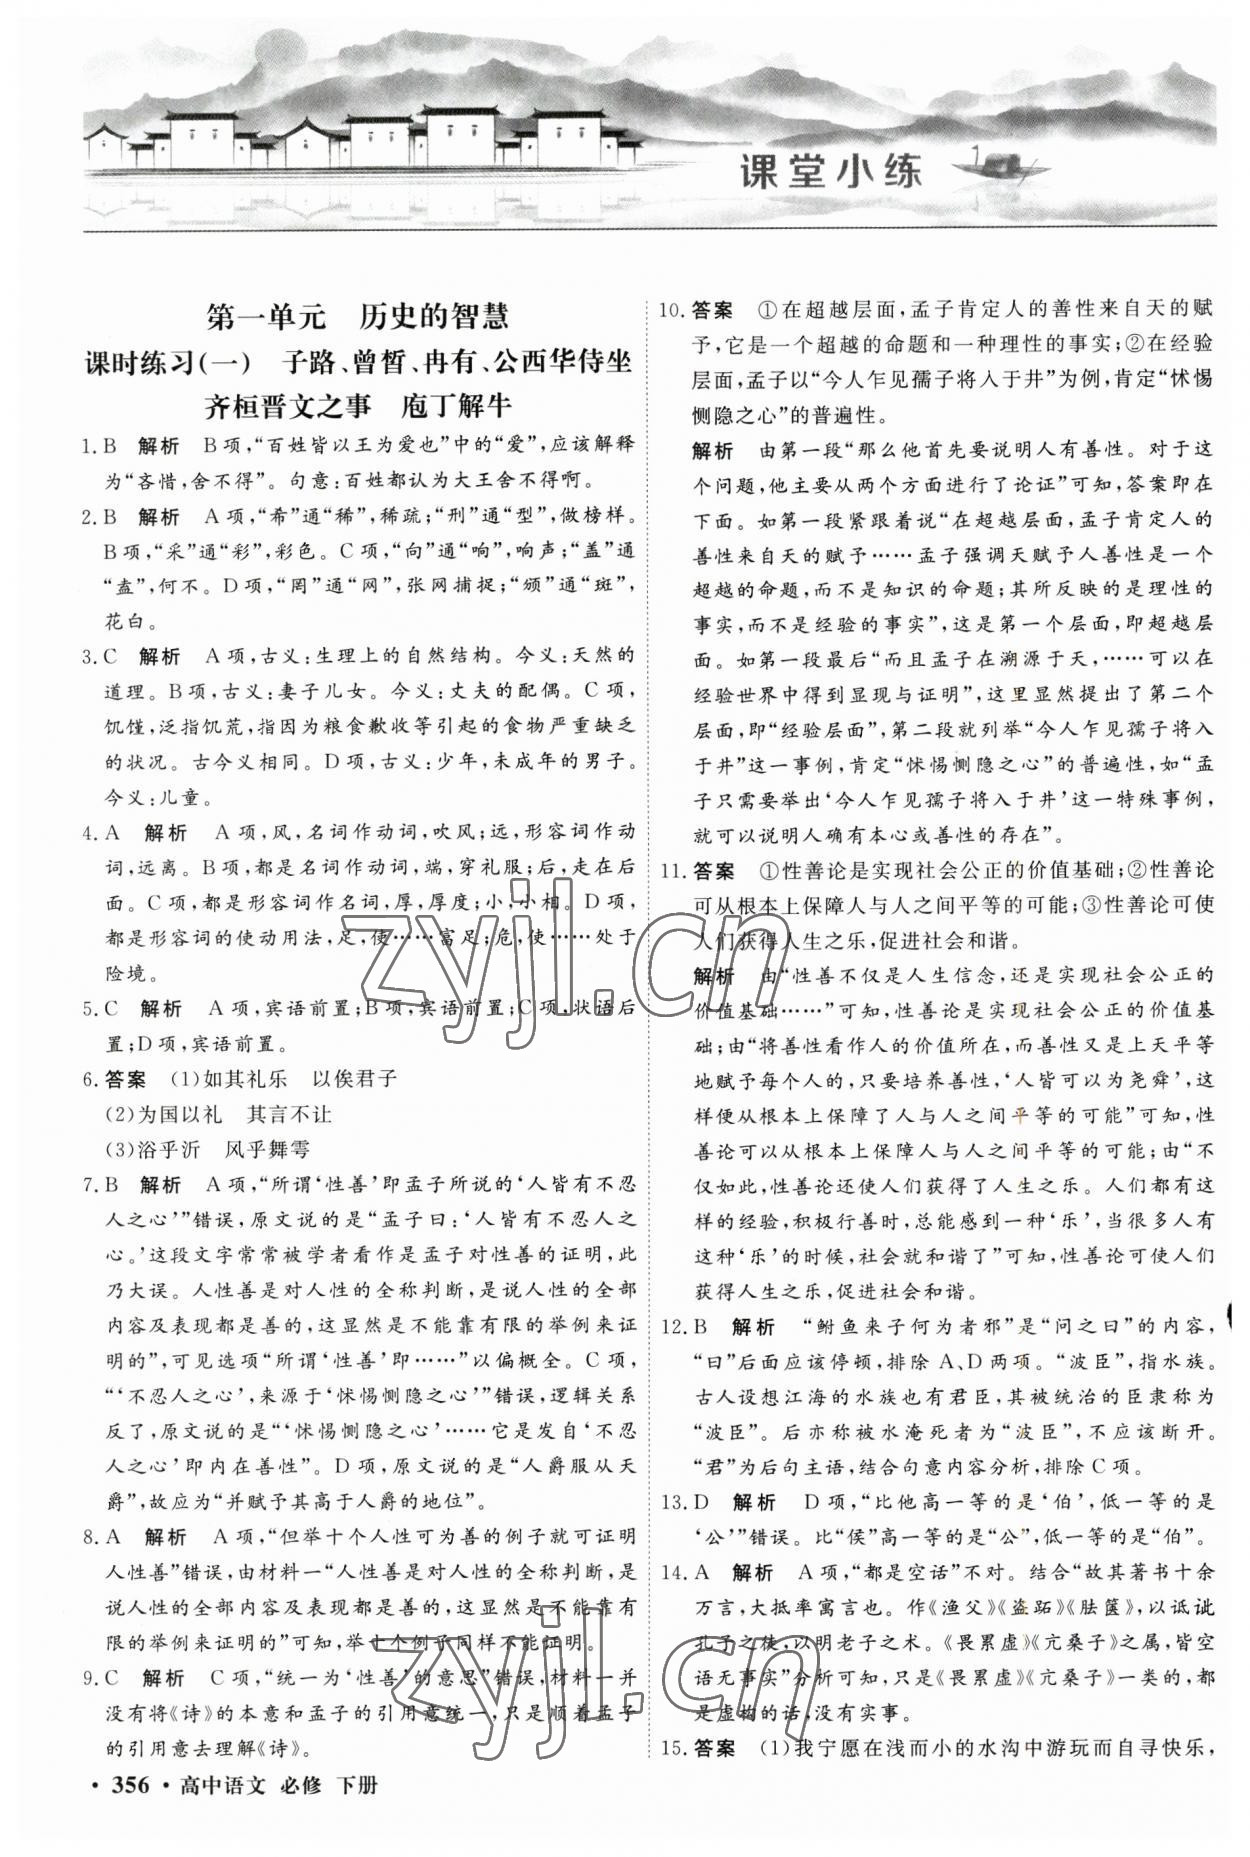 课堂小练
第一单元 历史的智慧
课时练习(一) 子路、曾皙、冉有、公西华侍坐
齐桓晋文之事 庖丁解牛
1. B 解析 B项,“百姓皆以王为爱也”中的“爱”,应该解释
为“吝惜,舍不得”。句意:百姓都认为大王舍不得啊。
2. B 解析 A项,“希”通“稀”,稀疏;“刑”通“型”,做榜样。
B项,“采”通“彩”,彩色。C项,“向”通“响”,响声;“盖”通
“盍”,何不。D项,“罔”通“网”,张网捕捉;“颁”通“斑”,
花白。
3. C 解析 A项,古义:生理上的自然结构。今义:天然的
道理。B项,古义:妻子儿女。今义:丈夫的配偶。C项,
饥馑,泛指饥荒,指因为粮食歉收等引起的食物严重缺乏
的状况。古今义相同。D项,古义:少年,未成年的男子。
今义:儿童。
4. A 解析 A项,风,名词作动词,吹风;远,形容词作动
词,远离。B项,都是名词作动词,端,穿礼服;后,走在后
面。C项,都是形容词作名词,厚,厚度;小,小相。D项,
都是形容词的使动用法,足,使……富足;危,使……处于
险境。
5. C 解析 A项,宾语前置;B项,宾语前置;C项,状语后
置;D项,宾语前置。
6. 答案 (1)如其礼乐 以俟君子
(2)为国以礼 其言不让
(3)浴乎沂 风乎舞雩
7. B 解析 A项,“所谓‘性善’即孟子所说的‘人皆有不忍
人之心’”错误,原文说的是“孟子曰:‘人皆有不忍人之
心。’这段文字常常被学者看作是孟子对性善的证明,此
乃大误。人性善是对人性的全称判断,是说人性的全部
内容及表现都是善的,这显然是不能靠有限的举例来证
明的”,可见选项“所谓‘性善’即……”以偏概全。C项,
“‘不忍人之心’,来源于‘怵惕恻隐之心’”错误,逻辑关系
反了,原文说的是“‘怵惕恻隐之心’……它是发自‘不忍
人之心’即内在善性”。D项,原文说的是“人爵服从天
爵”,故应为“并赋予其高于人爵的地位”。
8. A 解析 A项,“但举十个人性可为善的例子就可证明
人性善”错误,由材料一“人性善是对人性的全称判断,是
说人性的全部内容及表现都是善的,这显然是不能靠有
限的举例来证明的”可知,举十个例子同样不能证明。
9. C 解析 C项,“统一为‘性善’的意思”错误,材料一并
没有将《诗》的本意和孟子的引用意统一,只是顺着孟子
的引用意去理解《诗》。
10. 答案 ①在超越层面,孟子肯定人的善性来自天的赋
予,它是一个超越的命题和一种理性的事实;②在经验
层面,孟子以“今人乍见孺子将入于井”为例,肯定“怵惕
恻隐之心”的普遍性。
解析 由第一段“那么他首先要说明人有善性。对于这
个问题,他主要从两个方面进行了论证”可知,答案即在
下面。如第一段紧跟着说“在超越层面,孟子肯定人的
善性来自天的赋予……孟子强调天赋予人善性是一个
超越的命题,而不是知识的命题;其所反映的是理性的
事实,而不是经验的事实”,这是第一个层面,即超越层
面。如第一段最后“而且孟子在溯源于天,……可以在
经验世界中得到显现与证明”,这里显然提出了第二个
层面,即“经验层面”,第二段就列举“今人乍见孺子将入
于井”这一事例,肯定“怵惕恻隐之心”的普遍性,如“孟
子只需要举出‘今人乍见孺子将入于井’这一特殊事例,
就可以说明人确有本心或善性的存在”。
11. 答案 ①性善论是实现社会公正的价值基础;②性善论
可从根本上保障人与人之间平等的可能;③性善论可使
人们获得人生之乐,促进社会和谐。
解析 由“性善不仅是人生信念,还是实现社会公正的
价值基础……”可知,性善论是实现社会公正的价值基
础;由“将善性看作人的价值所在,而善性又是上天平等
地赋予每个人的,只要培养善性,‘人皆可以为尧舜’,这
样便从根本上保障了人与人之间平等的可能”可知,性
善论可以从根本上保障人与人之间平等的可能;由“不
仅如此,性善论还使人们获得了人生之乐。人们都有这
样的经验,积极行善时,总能感到一种‘乐’,当很多人有
这种‘乐’的时候,社会就和谐了”可知,性善论可使人们
获得人生之乐,促进社会和谐。
12. B 解析 “鲋鱼来子何为者邪”是“问之曰”的内容,
“曰”后面应该停顿,排除A、D两项。“波臣”,指水族。
古人设想江海的水族也有君臣,其被统治的臣隶称为
“波臣”。后亦称被水淹死者为“波臣”,不应该断开。
“君”为后句主语,结合句意内容分析,排除C项。
13. D 解析 D项,“比他高一等的是‘伯’,低一等的是
‘公’”错误。比“侯”高一等的是“公”,低一等的是“伯”。
14. A 解析 A项,“都是空话”不对。结合“故其著书十余
万言,大抵率寓言也。作《渔父》《盗跖》《胠箧》,以诋訿
孔子之徒,以明老子之术。《畏累虚》《亢桑子》之属,皆空
语无事实”分析可知,只是《畏累虚》《亢桑子》一类的,都
是虚构的话,没有实事。
15. 答案 (1)我宁愿在浅而小的水沟中游玩而自寻快乐,
· 356 · 高中语文 必修 下册
zyjl.cn
zyjl.cn